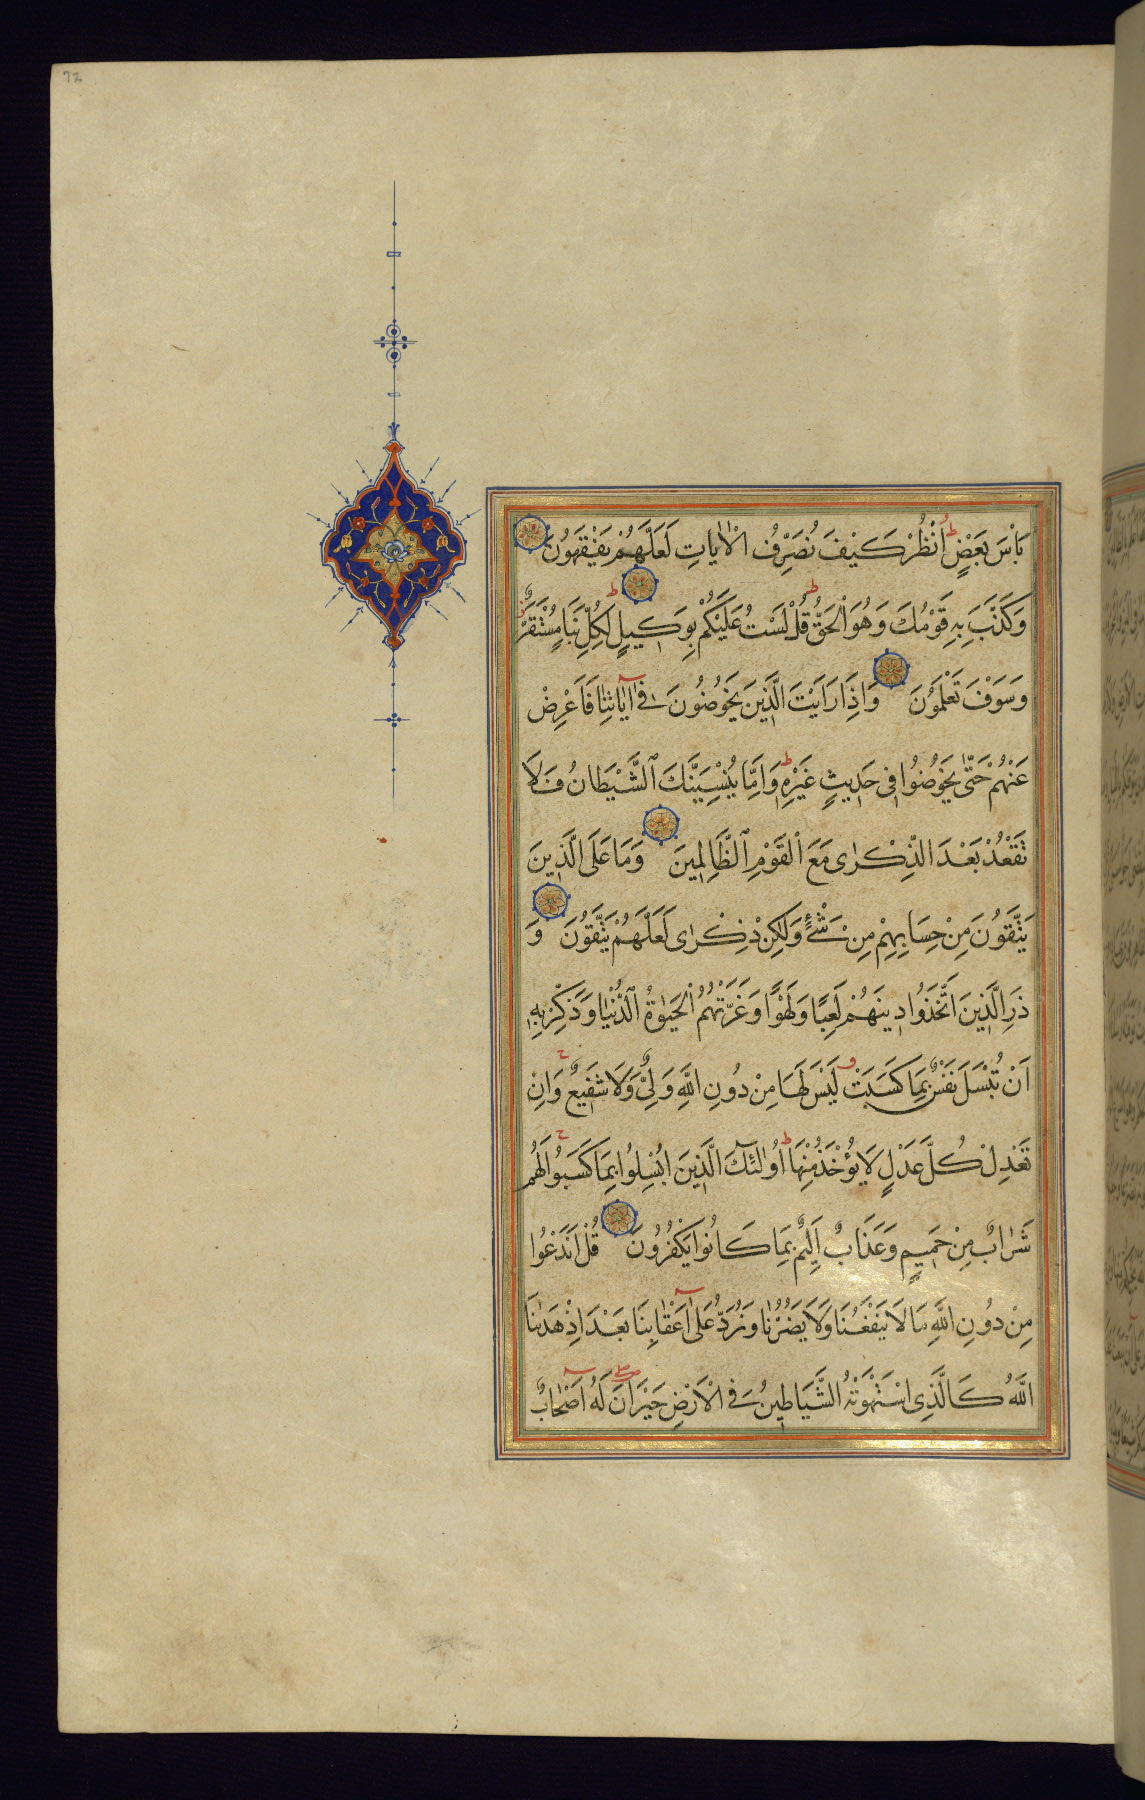 72
بَاْسَ بَعْضٍ ط اُنْظُرْ كَيْفَ نُصَرِّفُ الْاٰيَاتِ لَعَلَّهُمْ يَفْقَهُونَ
وَكَذَّبَ بِهِ قَوْمُكَ وَهُوَ الْحَقُّ ط قُلْ لَسْتُ عَلَيْكُمْ بِوَكِيلٍ ط لِكُلِّ نَبَاٍ مُسْتَقَرٌّ
وَسَوْفَ تَعْلَمُونَ وَاِذَا رَاَيْتَ الَّذِينَ يَخُوضُونَ فِىٓ اٰيَاتِنَا فَاَعْرِضْ
عَنْهُمْ حَتّٰى يَخُوضُوا فِى حَدِيثٍ غَيْرِهِ ط وَاِمَّا يُنْسِيَنَّكَ الشَّيْطَانُ فَلَا
تَقْعُدْ بَعْدَ الذِّكْرٰى مَعَ الْقَوْمِ الظَّالِمِينَ وَمَا عَلَى الَّذِينَ
يَتَّقُونَ مِنْ حِسَابِهِمْ مِنْ شَىْءٍ وَلٰكِنْ ذِكْرٰى لَعَلَّهُمْ يَتَّقُونَ وَ
ذَرِ الَّذِينَ اتَّخَذُوا دِينَهُمْ لَعِبًا وَلَهْوًا وَغَرَّتْهُمُ الْحَيٰوةُ الدُّنْيَا وَذَكِّرْ بِهِ
اَنْ تُبْسَلَ نَفْسٌ بِمَا كَسَبَتْ لَيْسَ لَهَا مِنْ دُونِ اللّٰهِ وَلِىٌّ وَلَا شَفِيعٌ ج وَاِنْ
تَعْدِلْ كُلَّ عَدْلٍ لَا يُؤْخَذْ مِنْهَا ط اُولٰٓئِكَ الَّذِينَ اُبْسِلُوا بِمَا كَسَبُوا ج لَهُمْ
شَرَابٌ مِنْ حَمِيمٍ وَعَذَابٌ اَلِيمٌ بِمَا كَانُوا يَكْفُرُونَ قُلْ اَنَدْعُوا
مِنْ دُونِ اللّٰهِ مَا لَا يَنْفَعُنَا وَلَا يَضُرُّنَا وَنُرَدُّ عَلٰٓى اَعْقَابِنَا بَعْدَ اِذْ هَدٰىنَا
اللّٰهُ كَالَّذِى اسْتَهْوَتْهُ الشَّيَاطِينُ فِى الْاَرْضِ حَيْرَانَ ص لَهُٓ اَصْحَابٌ